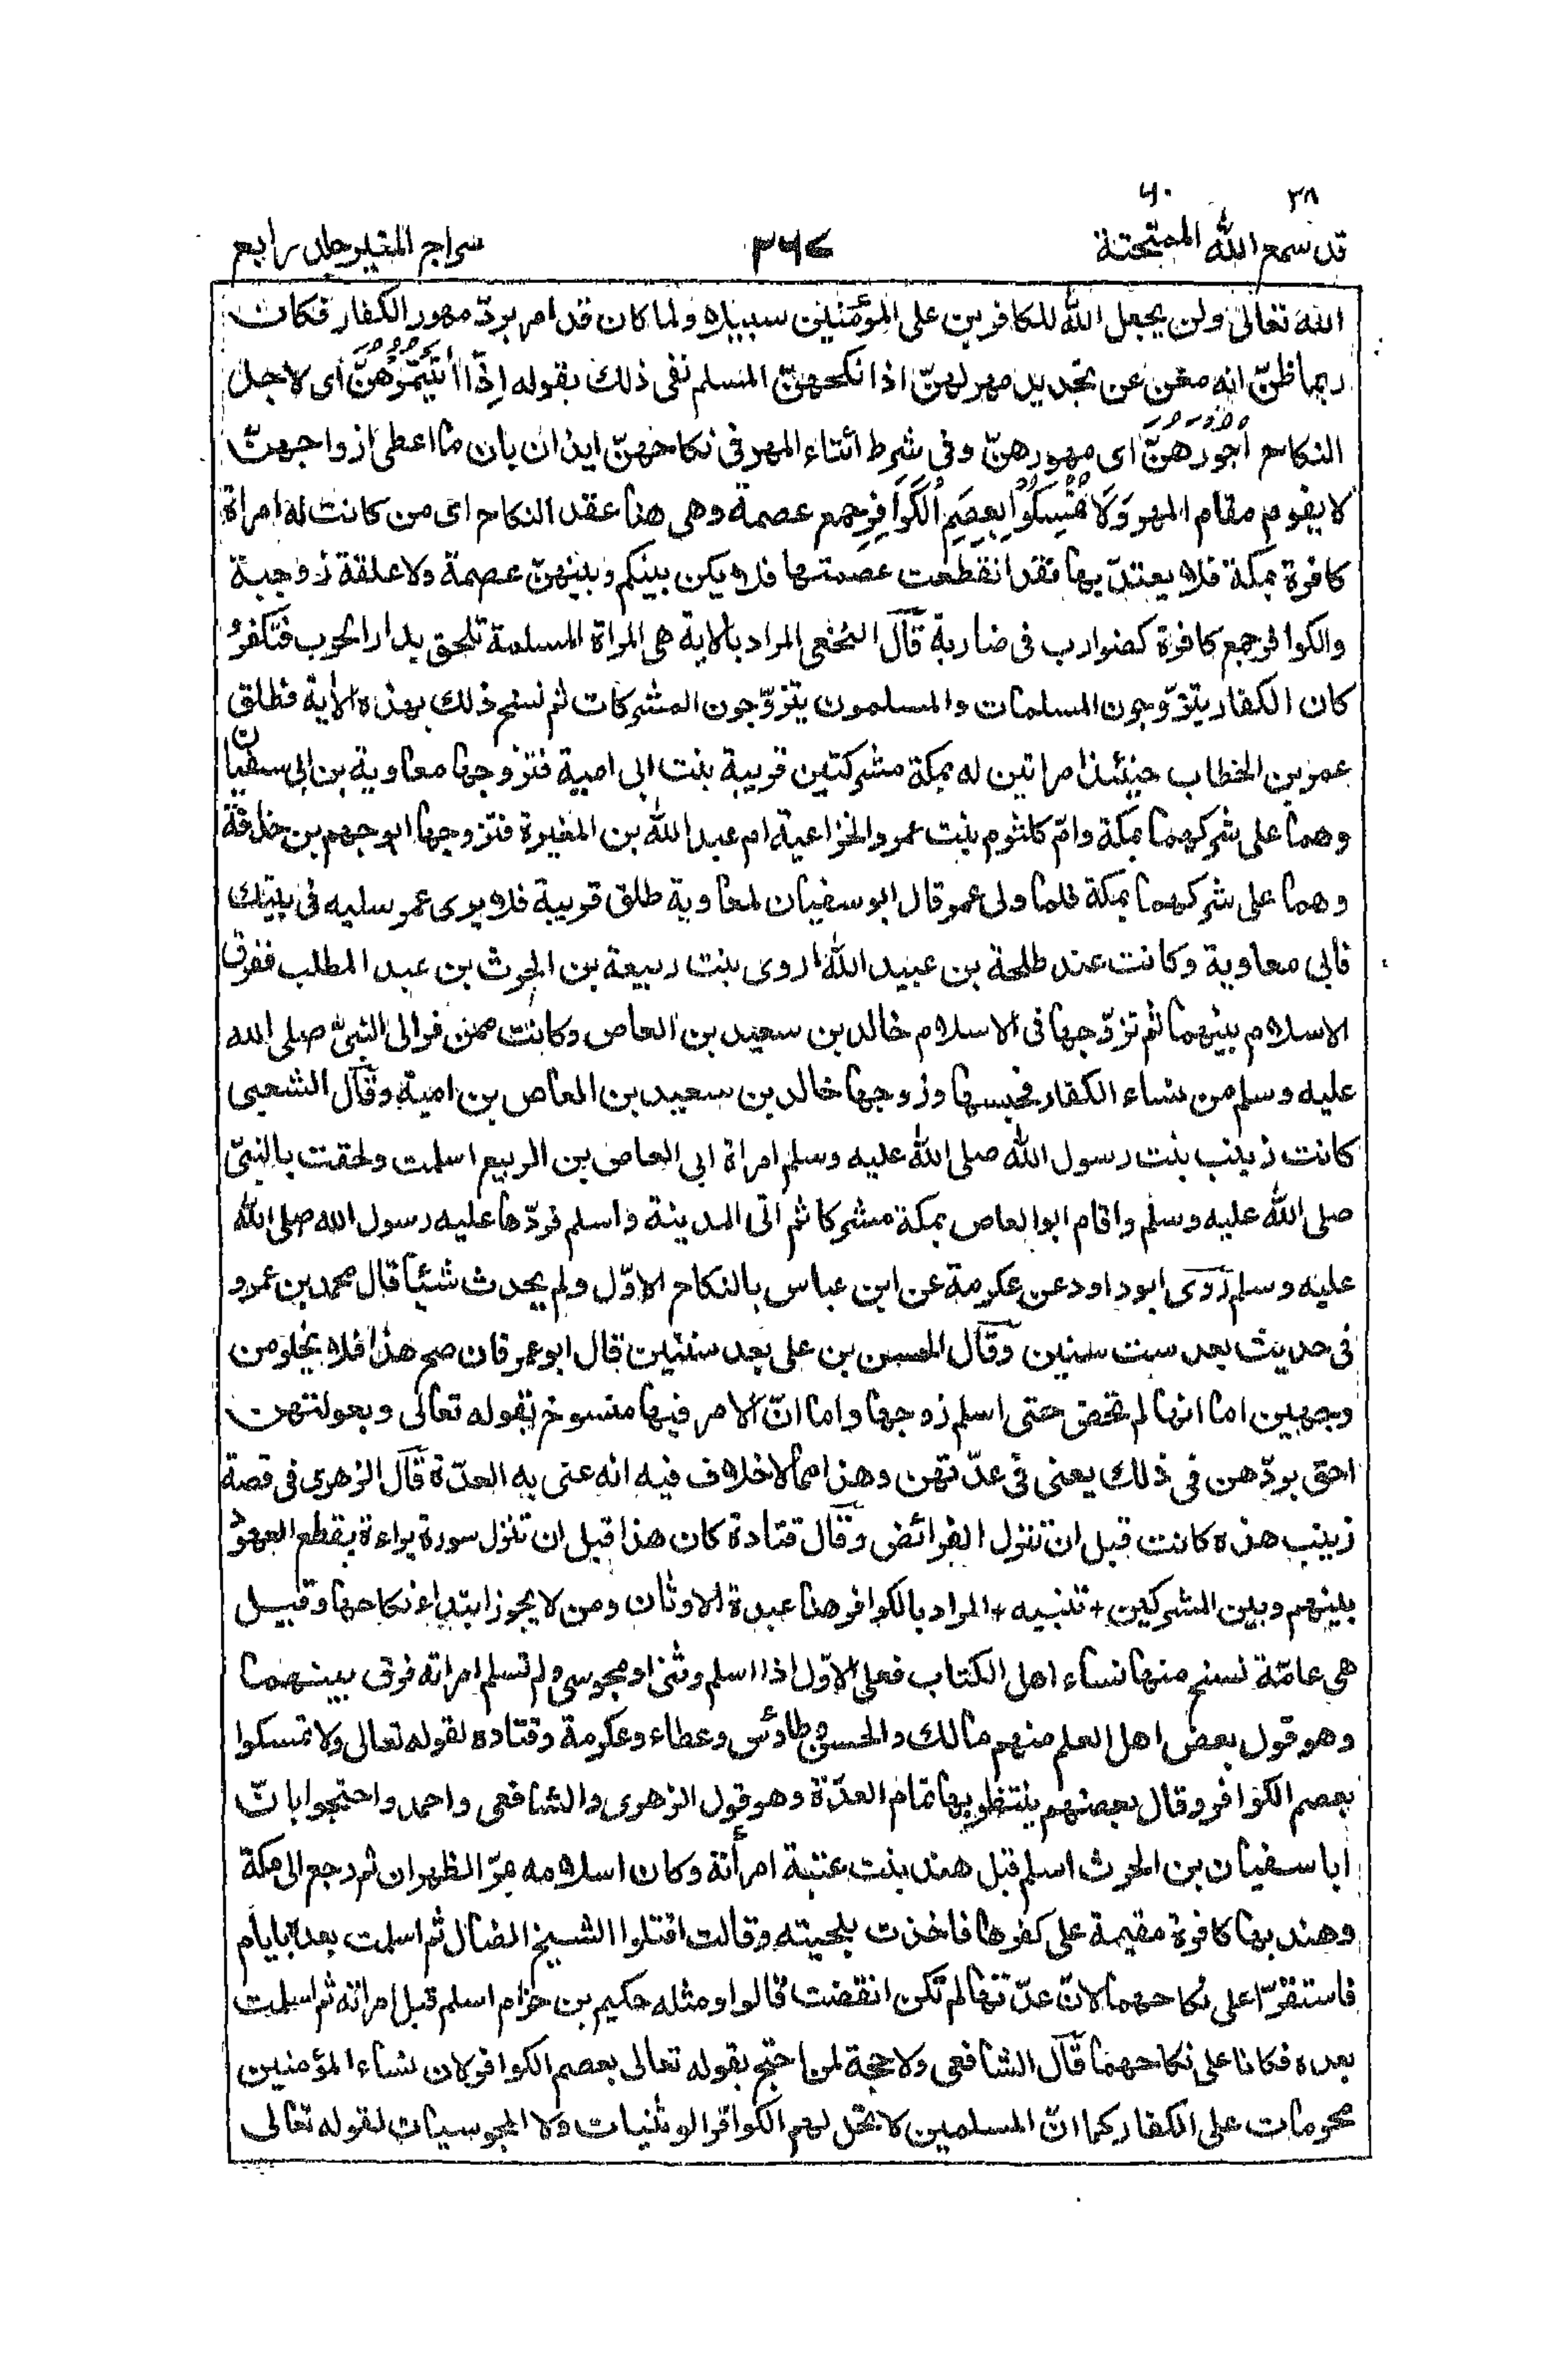 ٢٨ ٦٠
قد سمع الله الممتحنة ٢٦٧ سراج المنير جلد رابع
الله تعالى ولن يجعل الله للكافرين على المؤمنين سبيلا ولما كان قد امر بردّ مهور الكفار فكان
ربما ظنّ انه مغن عن تجديد مهر لهنّ اذا نكحهنّ المسلم نفى ذلك بقوله اِذَا اٰتَيْتُمُوْهُنَّ اى لاجل
النكاح اُجُوْرَهُنَّ اى مهورهنّ وفى شرط ائتاء المهر فى نكاحهنّ ايذان بان ما اعطى ازواجهنّ
لا يقوم مقام المهر وَلَا تُمْسِكُوْا بِعِصَمِ الْكَوَافِرِ جمع عصمة وهى هنا عقد النكاح اى من كانت له امراة
كافرة بمكة فلا يعتدّ بها فقد انقطعت عصمتها فلا يكن بينكم وبينهنّ عصمة ولا علقة زوجية
والكوافر جمع كافرة كضوارب فى ضاربة قال النخعى المراد بالاية هى المراة المسلمة تلحق بدار الحرب فتكفر و
كان الكفار يتزوّجون المسلمات والمسلمون يتزوّجون المشركات ثم نسخ ذلك بهذه الأية فطلق
عمر بن الخطاب حينئذ امراتين له بمكة مشركتين قريبة بنت ابى امية فتزوجها معاوية بن ابى سفيان
وهما على شركهما بمكة وامّ كلثوم بنت عمرو الخزاعية ام عبد الله بن المغيرة فتزوجها ابوجهم بن حذافة
وهما على شركهما بمكة فلما ولى عمر قال ابو سفيان لمعاوية طلق قريبة فلا يرى عمر سلبه فى بيتك
فابى معاوية وكانت عند طلحة بن عبيد الله اروى بنت ربيعة بن الحرث بن عبد المطلب ففرق
الاسلام بينهما ثم تزوّجها فى الاسلام خالد بن سعيد بن العاص وكانت ممن فر الى النبىّ صلى الله
عليه وسلم من نساء الكفار فحبسها وزوجها خالد بن سعيد بن العاص بن امية وقال الشعبى
كانت زينب بنت رسول الله صلى الله عليه وسلم امراة ابى العاص بن الربيع اسلمت ولحقت بالنبىّ
صلى الله عليه وسلم واقام ابو العاص بمكة مشركا ثم اتى المدينة واسلم فردّها عليه رسول الله صلى الله
عليه وسلم روى ابوداود عن عكرمة عن ابن عباس بالنكاح الاوّل ولم يحدث شيئا قال محمد بن عمرو
فى حديث بعد ست سنين وقال الحسن بن على بعد سنتين قال ابو عمر فان صح هذا فلا يخلو من
وجهين اما انها لم تحض حتى اسلم زوجها واما انّ الامر فيها منسوخ بقوله تعالى وبعولتهن
احق بردّهن فى ذلك يعنى فى عدّتهن وهذا مما لا خلاف فيه انه عنى به العدّة قال الزهرى فى قصة
زينب هذه كانت قبل ان تنزل الفرائض وقال قتادة كان هذا قبل ان تنزل سورة براءة بقطع العهود
بينهم وبين المشركين + تنبيه + المراد بالكوافر هنا عبدة الاوثان ومن لا يجوز ابتداء نكاحها وقيل
هى عامّة نسخ منها نساء اهل الكتاب فعلى الاوّل اذا اسلم وثنى او مجوسى ولم تسلم امراته فرق بينهما
وهو قول بعض اهل العلم منهم مالك والحسن وطاوس وعطاء وعكرمة وقتاده لقوله تعالى ولا تمسكوا
بعصم الكوافر وقال بعضهم ينتظر بها تمام العدّة وهو قول الزهرى والشافعى واحمد واحتجوا بانّ
ابا سفيان بن الحرث اسلم قبل هند بنت عتبة امرأته وكان اسلامه بمرّ الظهران ثم رجع الى مكة
وهند بها كافرة مقيمة على كفرها فاخذت بلحيته وقالت اقتلوا الشيخ الضال ثم اسلمت بعده بايام
فاستقرّا على نكاحهما لانّ عدّتها لم تكن انقضت قالوا ومثله حكيم بن حزام اسلم قبل امراته ثم اسلمت
بعده فكانا على نكاحهما قال الشافعى ولا حجة لمن احتج بقوله تعالى بعصم الكوافر لان نساء المؤمنين
محرمات على الكفار كما انّ المسلمين لا تحل لهم الكوافر الوثنيات ولا المجوسيات لقوله تعالى